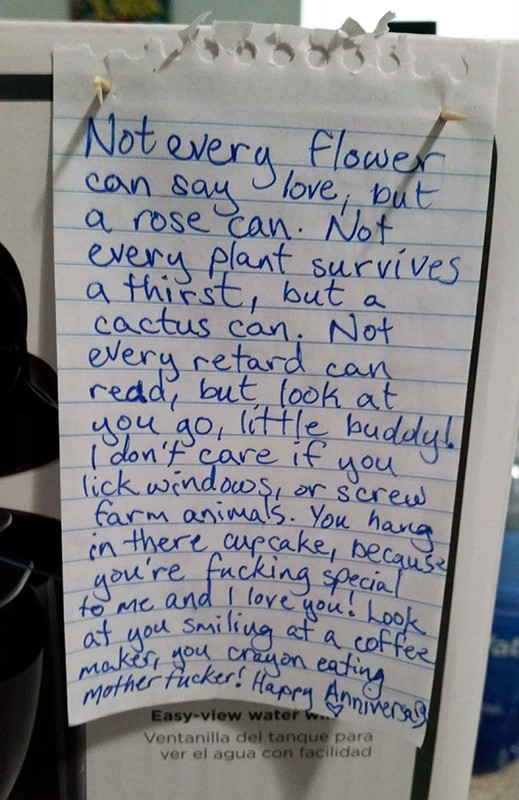 Not every flower
can say love, but
a rose can. Not
every plant survives
a thirst, but a
cactus can. Not
every retard can
read, but look at
you go, little buddy!
I don't care if you
lick windows, or screw
farm animals. You hang
in there cupcake, because
you're fucking special
to me and I love you! Look
at you smiling at a coffee
maker, you crayon eating
mother fucker! Happy Anniversary
Easy-view water
Ventanilla del tanque para
ver el agua con facilidad